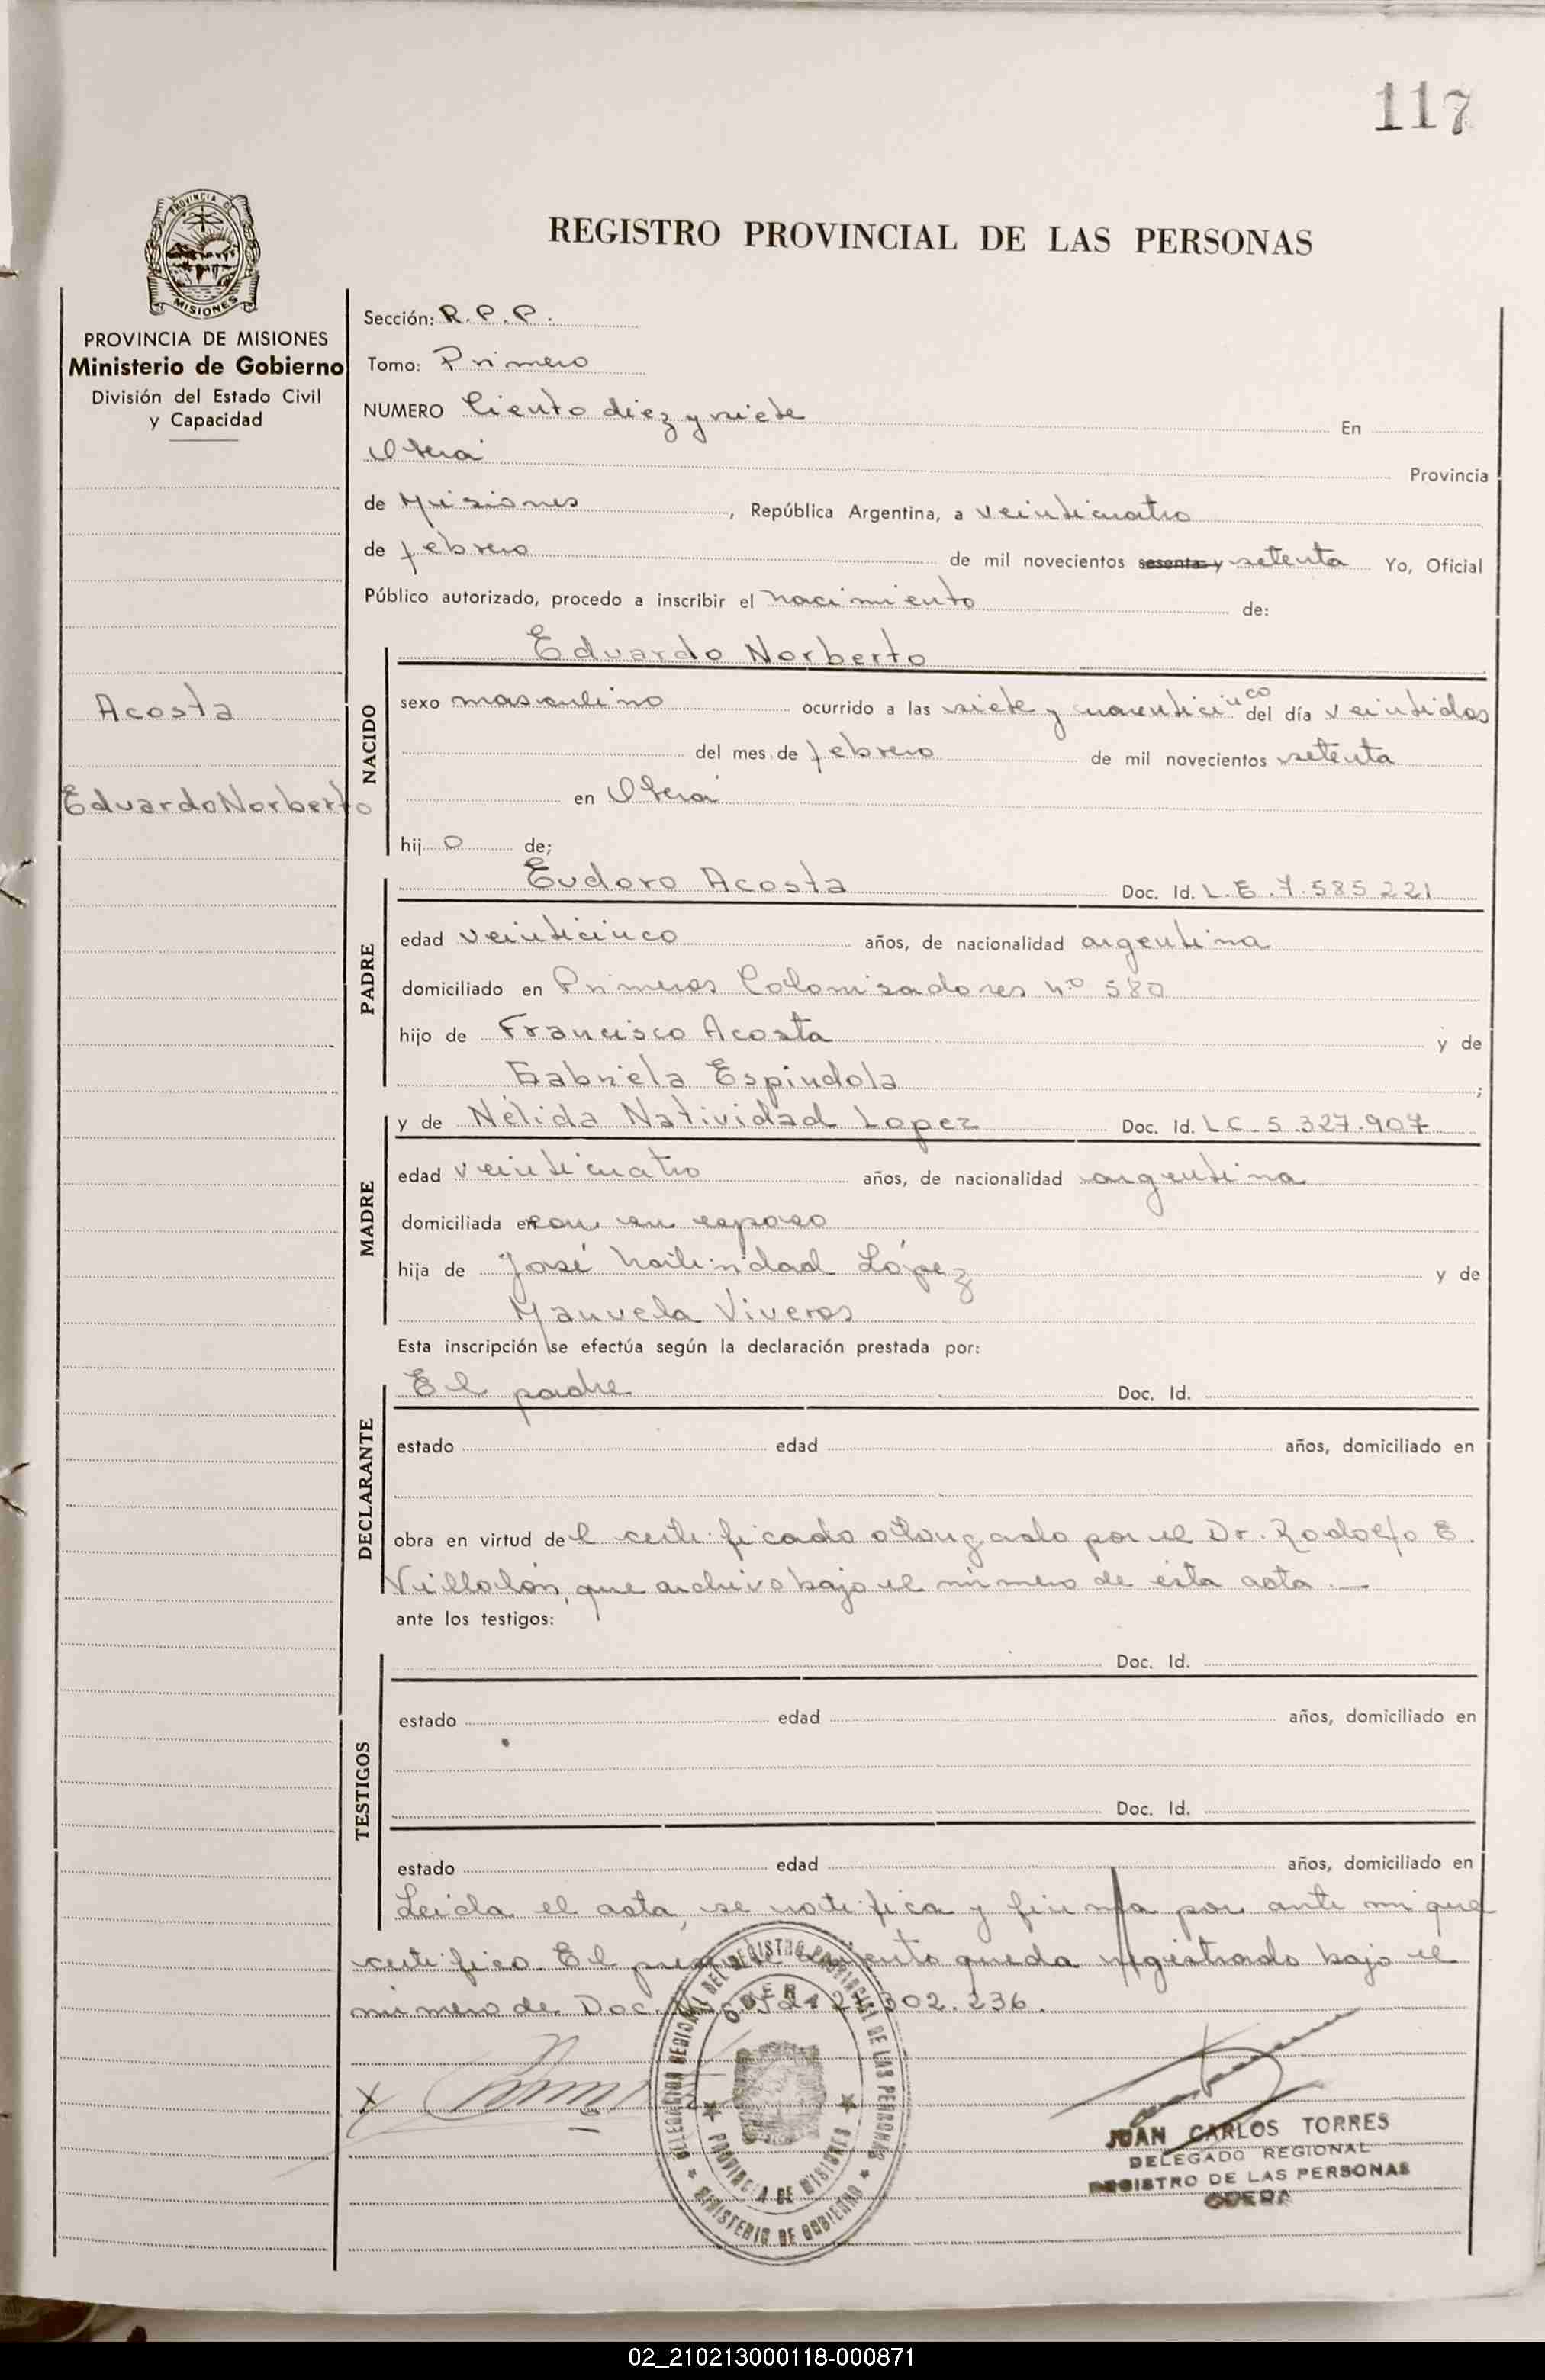 117
PROVINCIA DE
MISIONES
PROVINCIA DE MISIONES
Ministerio de Gobierno
División del Estado Civil
y Capacidad
REGISTRO PROVINCIAL DE LAS PERSONAS
Sección: R.P.P.
Tomo: Primero
NUMERO Ciento diez y siete En
Oberá
Provincia
de Misiones, República Argentina, a veinticuatro
de febrero de mil novecientos sesenta y setenta Yo, Oficial
Público autorizado, procedo a inscribir el nacimiento de:
Acosta
Eduardo Norberto
NACIDO
Eduardo Norberto
sexo masculino ocurrido a las siete y cuarenticinco del día veintidos
del mes de febrero de mil novecientos setenta
en Oberá
hijo de;
PADRE
Eudoro Acosta Doc. Id. L.E.7.585.221
edad veinticinco años, de nacionalidad argentina
domiciliado en Primeros Colonizadores nº 580
hijo de Francisco Acosta y de
Gabriela Espindola;
MADRE
y de Nélida Natividad Lopez Doc. Id. L.C. 5.327.907
edad veinticuatro años, de nacionalidad argentina
domiciliada en con su esposo
hija de José Natividad López y de
Manuela Viveros
Esta inscripción se efectúa según la declaración prestada por:
DECLARANTE
El padre Doc. Id.
estado edad años, domiciliado en
obra en virtud del certificado otorgado por el Dr. Rodolfo E.
que archivo bajo el número de esta acta.—
ante los testigos:
TESTIGOS
Doc. Id.
estado edad años, domiciliado en
Doc. Id.
estado edad años, domiciliado en
Leida el acta, se notifica y firma por ante mi que
certifico. El presente nacimiento queda registrado bajo el
número de Doc. 21.302.236.
DELEGACION REGIONAL DEL REGISTRO PROVINCIAL DE LAS PERSONAS
OBERA
PROVINCIA DE MISIONES
MINISTERIO DE GOBIERNO
JUAN CARLOS TORRES
DELEGADO REGIONAL
REGISTRO DE LAS PERSONAS
OBERA
02_210213000118-000871